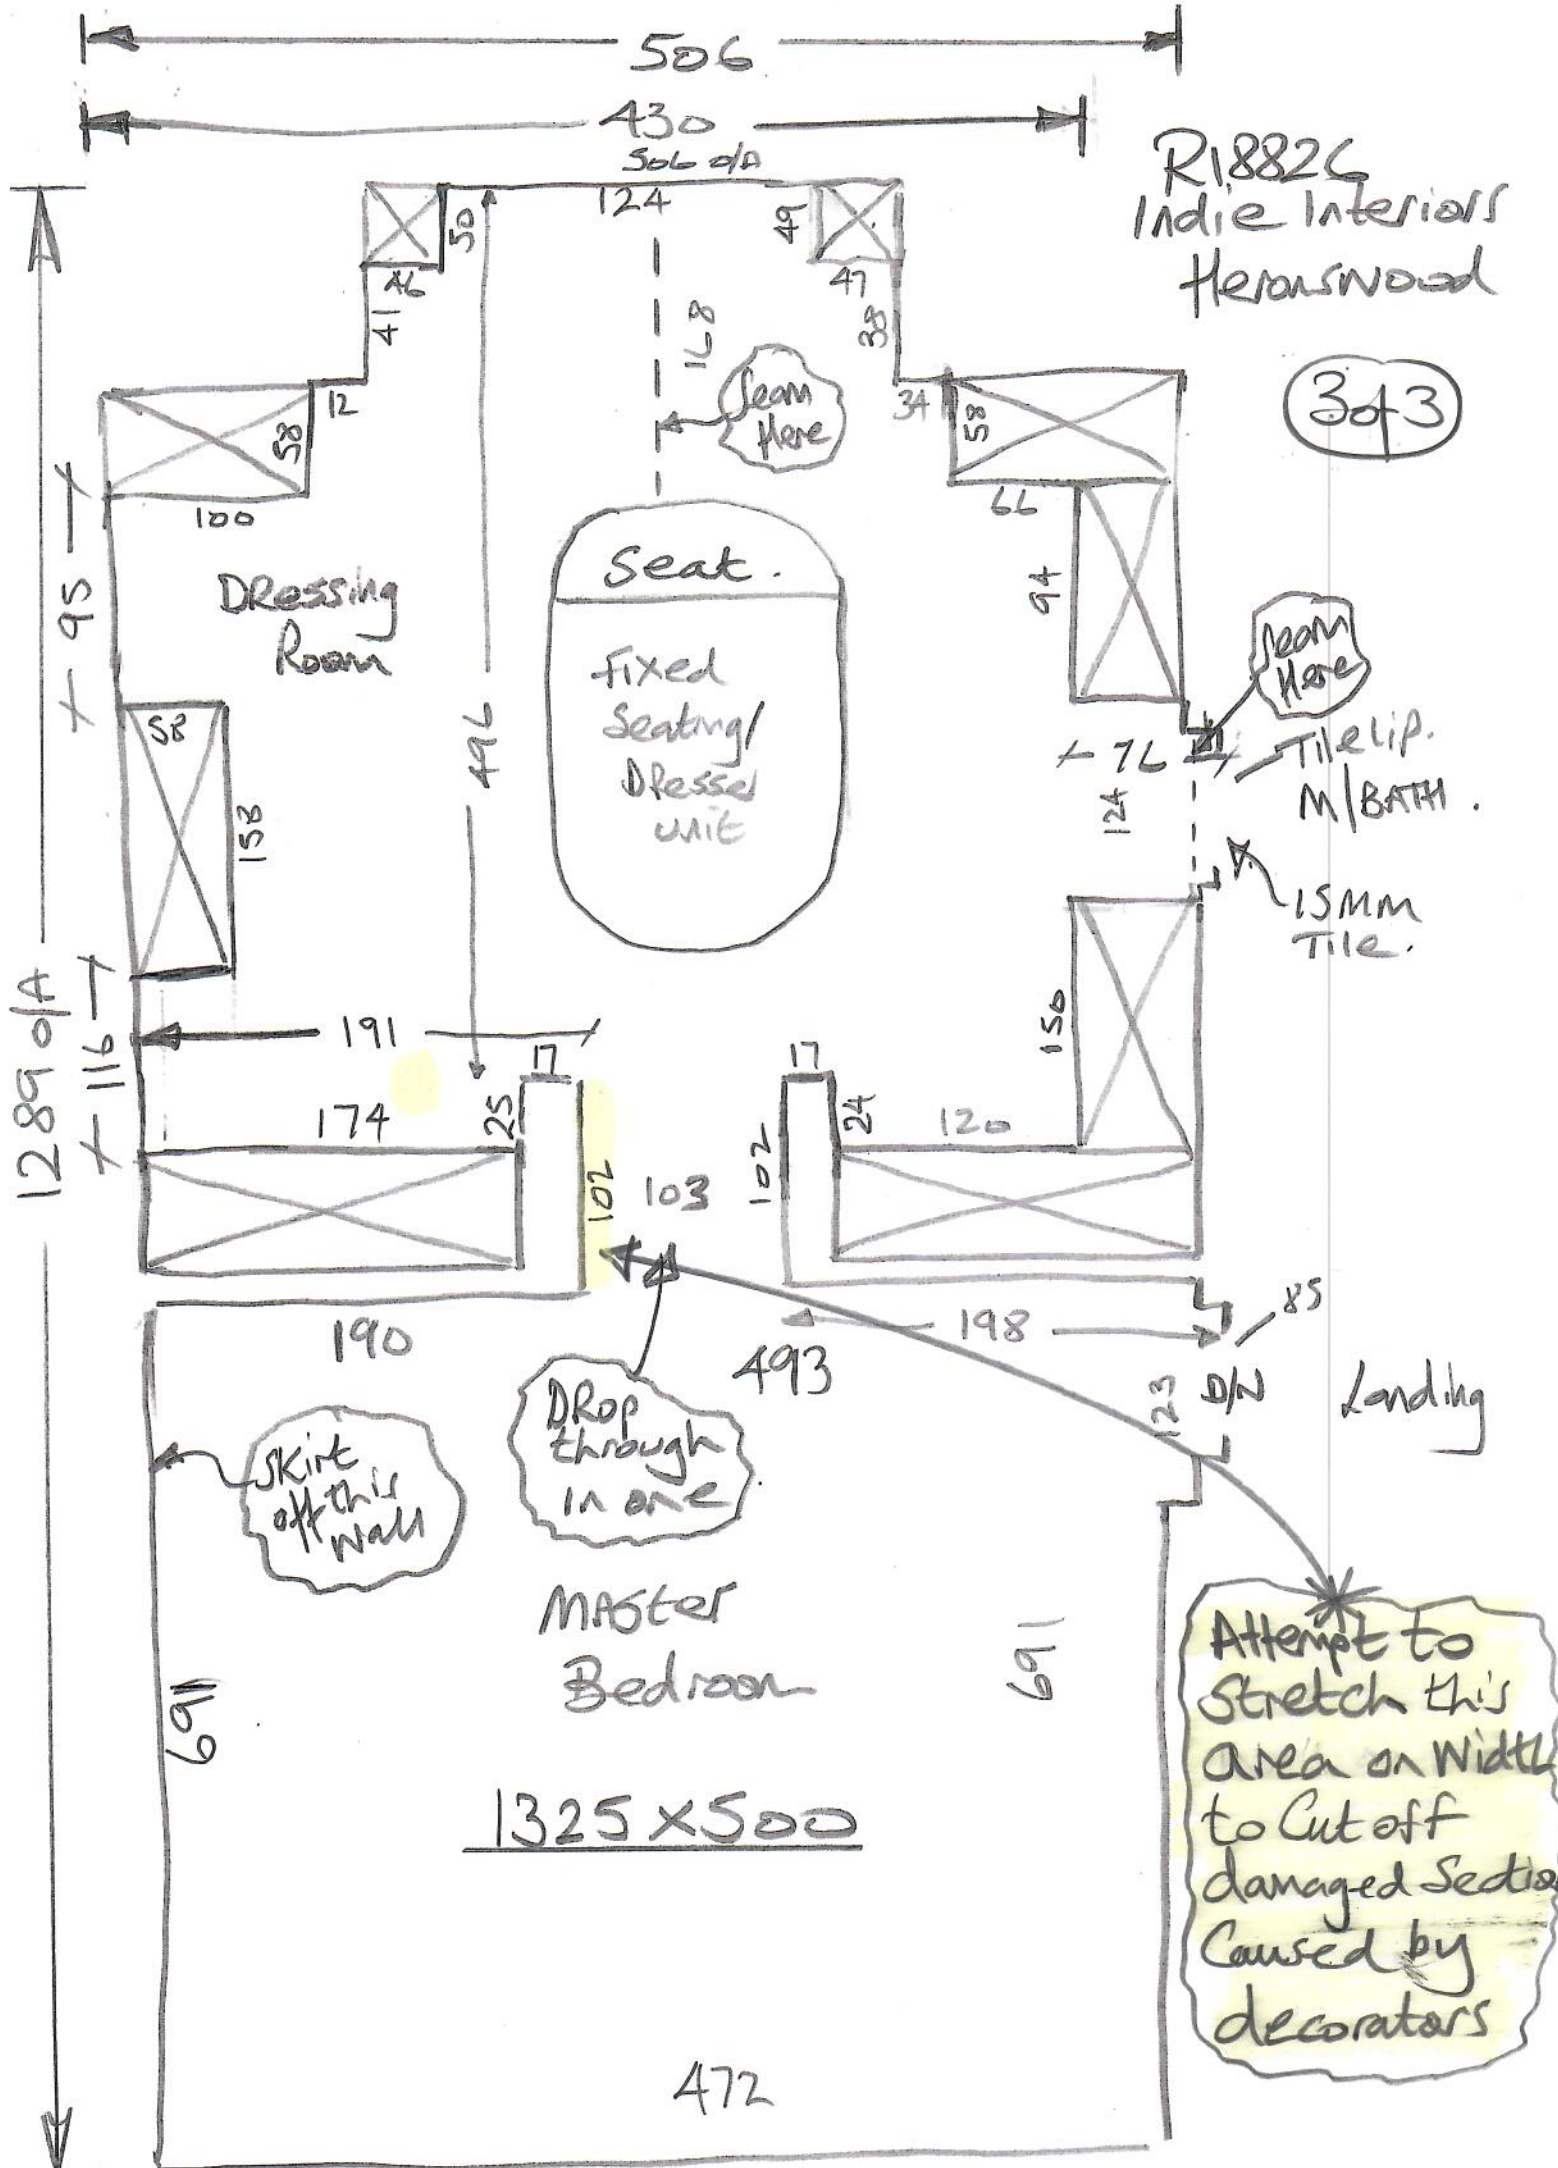 506
430
506 o/A
124
R18826
Indie Interiors
Heronswood
50
49
46
47
41
38
168
Seam
Here
3 of 3
12
34
58
58
100
66
95
Dressing
Room
Seat.
94
Fixed
Seating/
Dresser
unit
Seam
Here
58
158
496
76
Tile lip.
M/BATH.
124
15MM
Tile.
1289 o/A
116
191
150
17
17
174
25
24
120
102
103
102
190
198
85
493
123
D/W
Landing
Skirt
off this
wall
Drop
through
in one
Master
Bedroom
691
691
1325 x 500
Attempt to
Stretch this
area on Width
to Cut off
damaged Section
Caused by
decorators
472